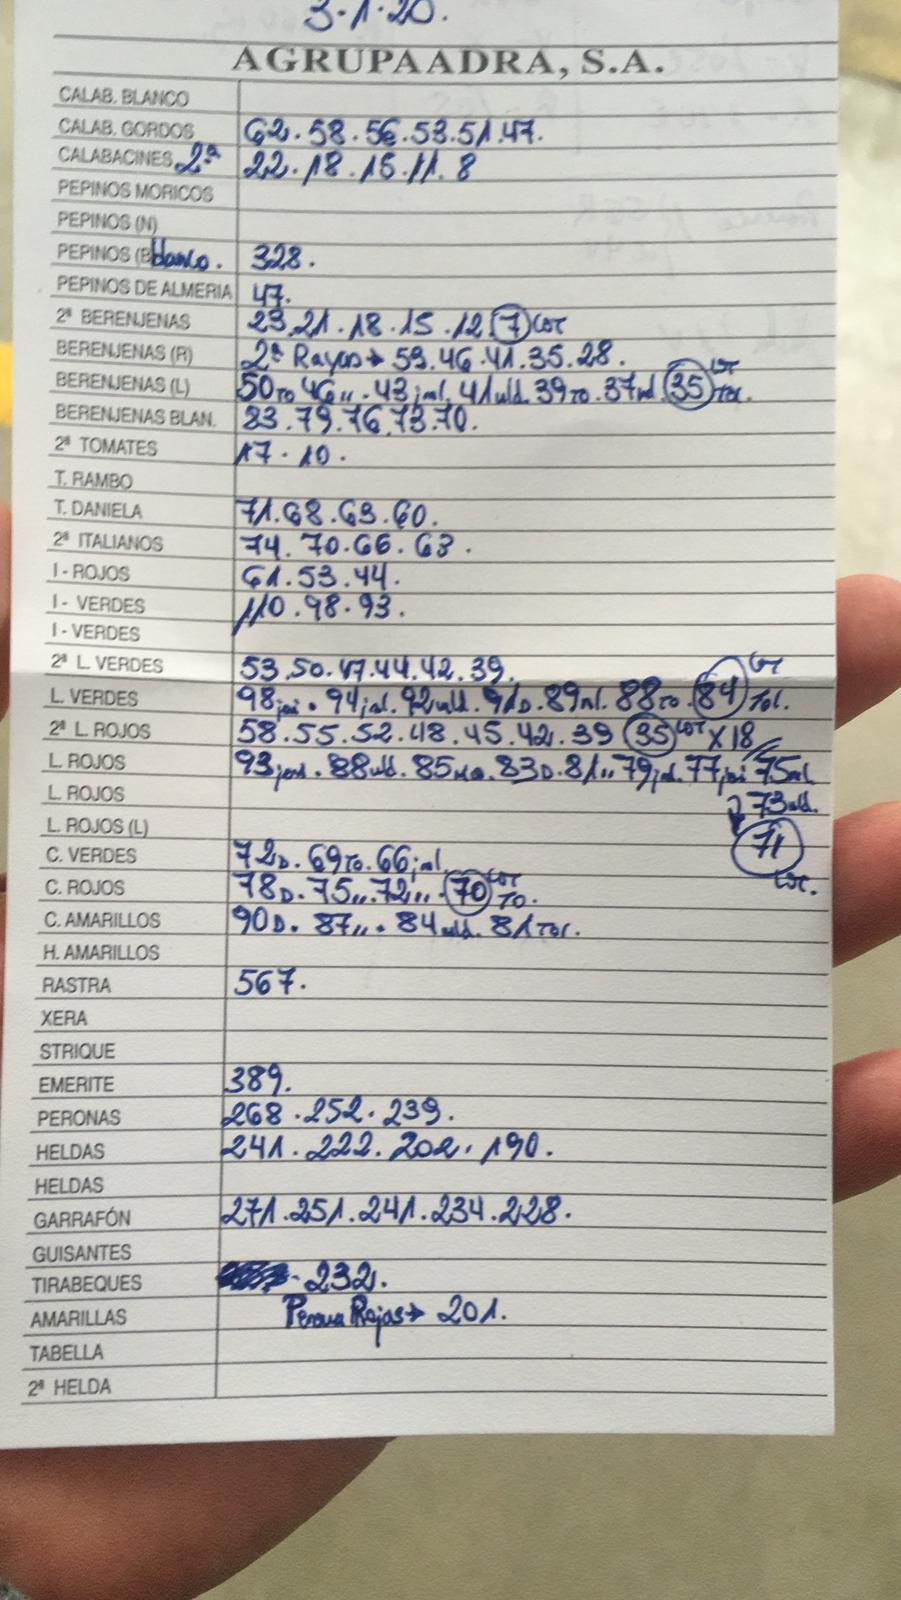 3·1·20.
AGRUPAADRA, S.A.
CALAB. BLANCO
CALAB. GORDOS 62. 58. 56. 53. 51. 47.
CALABACINES 2ª 22. 18. 15. 11. 8
PEPINOS MORICOS
PEPINOS (N)
PEPINOS (B blanco. 328.
PEPINOS DE ALMERIA 47.
2ª BERENJENAS 23. 21. 18. 15. 12 7 COT
BERENJENAS (R) 2ª Rayas → 59. 46. 41. 35. 28.
BERENJENAS (L) 50 To 46 ,, . 43 . 41 . 39 To. 37 . 35 COT Tol.
BERENJENAS BLAN. 83. 79. 76. 73. 70.
2ª TOMATES 17. 10.
T. RAMBO
T. DANIELA 71. 68. 63. 60.
2ª ITALIANOS 74. 70. 66. 63.
I - ROJOS 61. 53. 44.
I - VERDES 110. 98. 93.
I - VERDES
2ª L. VERDES 53. 50. 47. 44. 42. 39.
L. VERDES 98 . 94 . 92 . 91 D. 89 . 88 To. 84 COT Tol.
2ª L. ROJOS 58. 55. 52. 48. 45. 42. 39 35 COT X 18
L. ROJOS 93 . 88 . 85 . 83 D. 81 ,, . 79 . 77 . 75
L. ROJOS → 73
L. ROJOS (L) 71 COT.
C. VERDES 72 D. 69 To. 66
C. ROJOS 78 D. 75 ,, . 72 ,, . 70 COT To.
C. AMARILLOS 90 D. 87 ,, . 84 . 81 Tol.
H. AMARILLOS
RASTRA 567.
XERA
STRIQUE
EMERITE 389.
PERONAS 268. 252. 239.
HELDAS 241. 222. 202. 190.
HELDAS
GARRAFÓN 271. 251. 241. 234. 228.
GUISANTES
TIRABEQUES 232.
AMARILLAS Perona Rojas → 201.
TABELLA
2ª HELDA